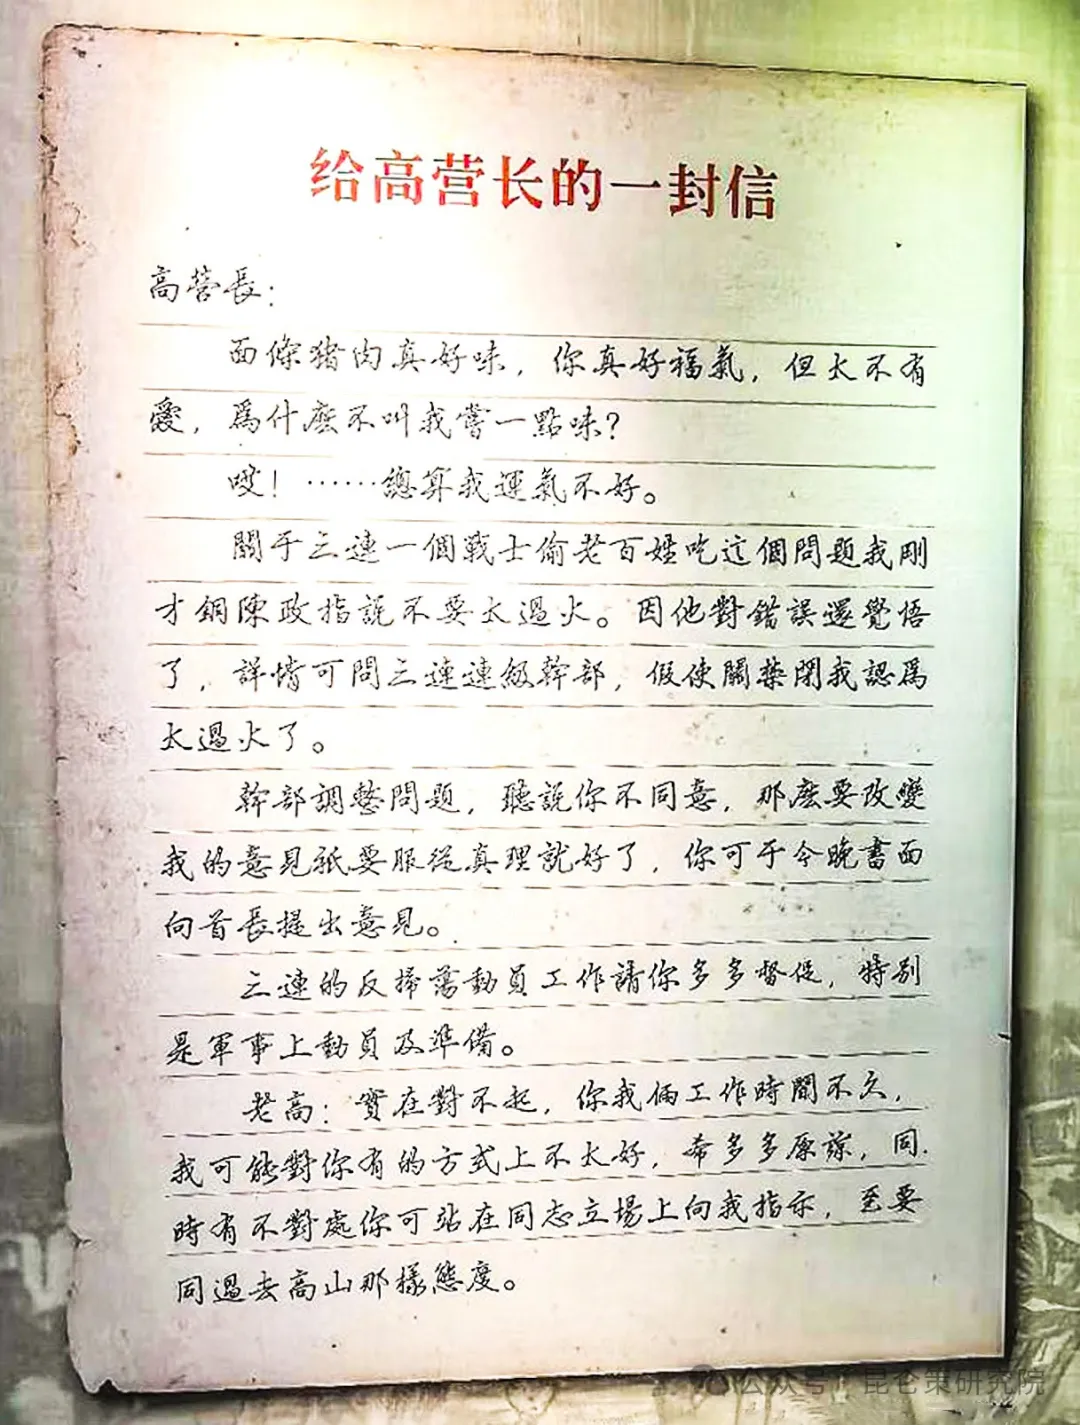 给高营长的一封信
高营長：
面條猪肉真好味，你真好福氣，但太不有
愛，爲什麽不叫我嘗一點味？
哎！……總算我運氣不好。
關于三連一個戰士偷老百姓吃這個問題我剛
才銅陳政指説不要太過火。因他對錯誤還覺悟
了，詳情可問三連連級幹部，假使關禁閉我認爲
太過火了。
幹部調整問題，聽説你不同意，那麽要改變
我的意見祇要服從真理就好了，你可于今晚書面
向首長提出意見。
三連的反掃蕩動員工作請你多多督促，特别
是軍事上動員及準備。
老高：實在對不起，你我倆工作時間不久，
我可能對你有的方式上不太好，希多多原諒，同
時有不對處你可站在同志立場上向我指示，至要
同過去高山那樣態度。
公众号 昆仑策研究院